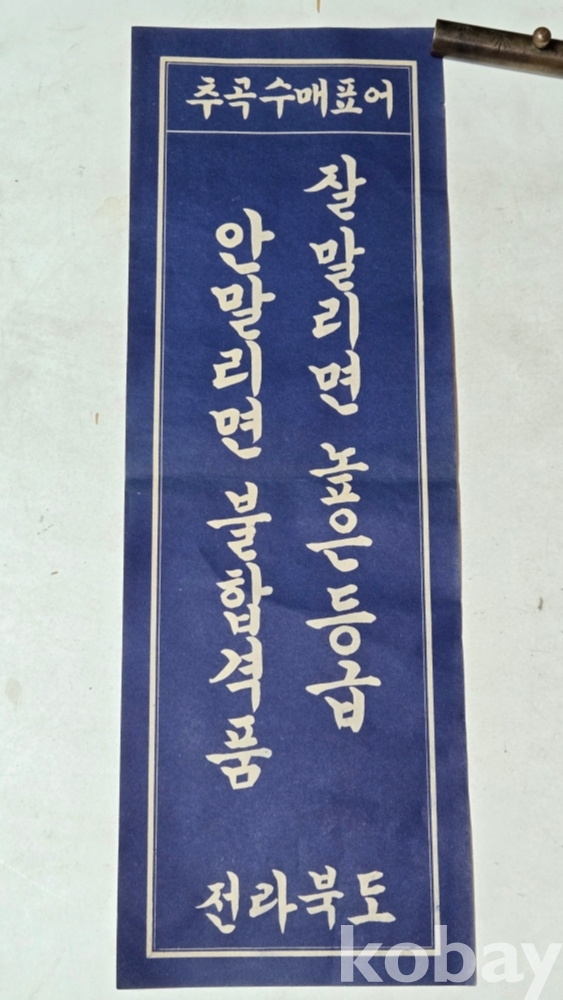 추곡수매표어
잘말리면 높은등급
안말리면 불합격품
전라북도
kobay